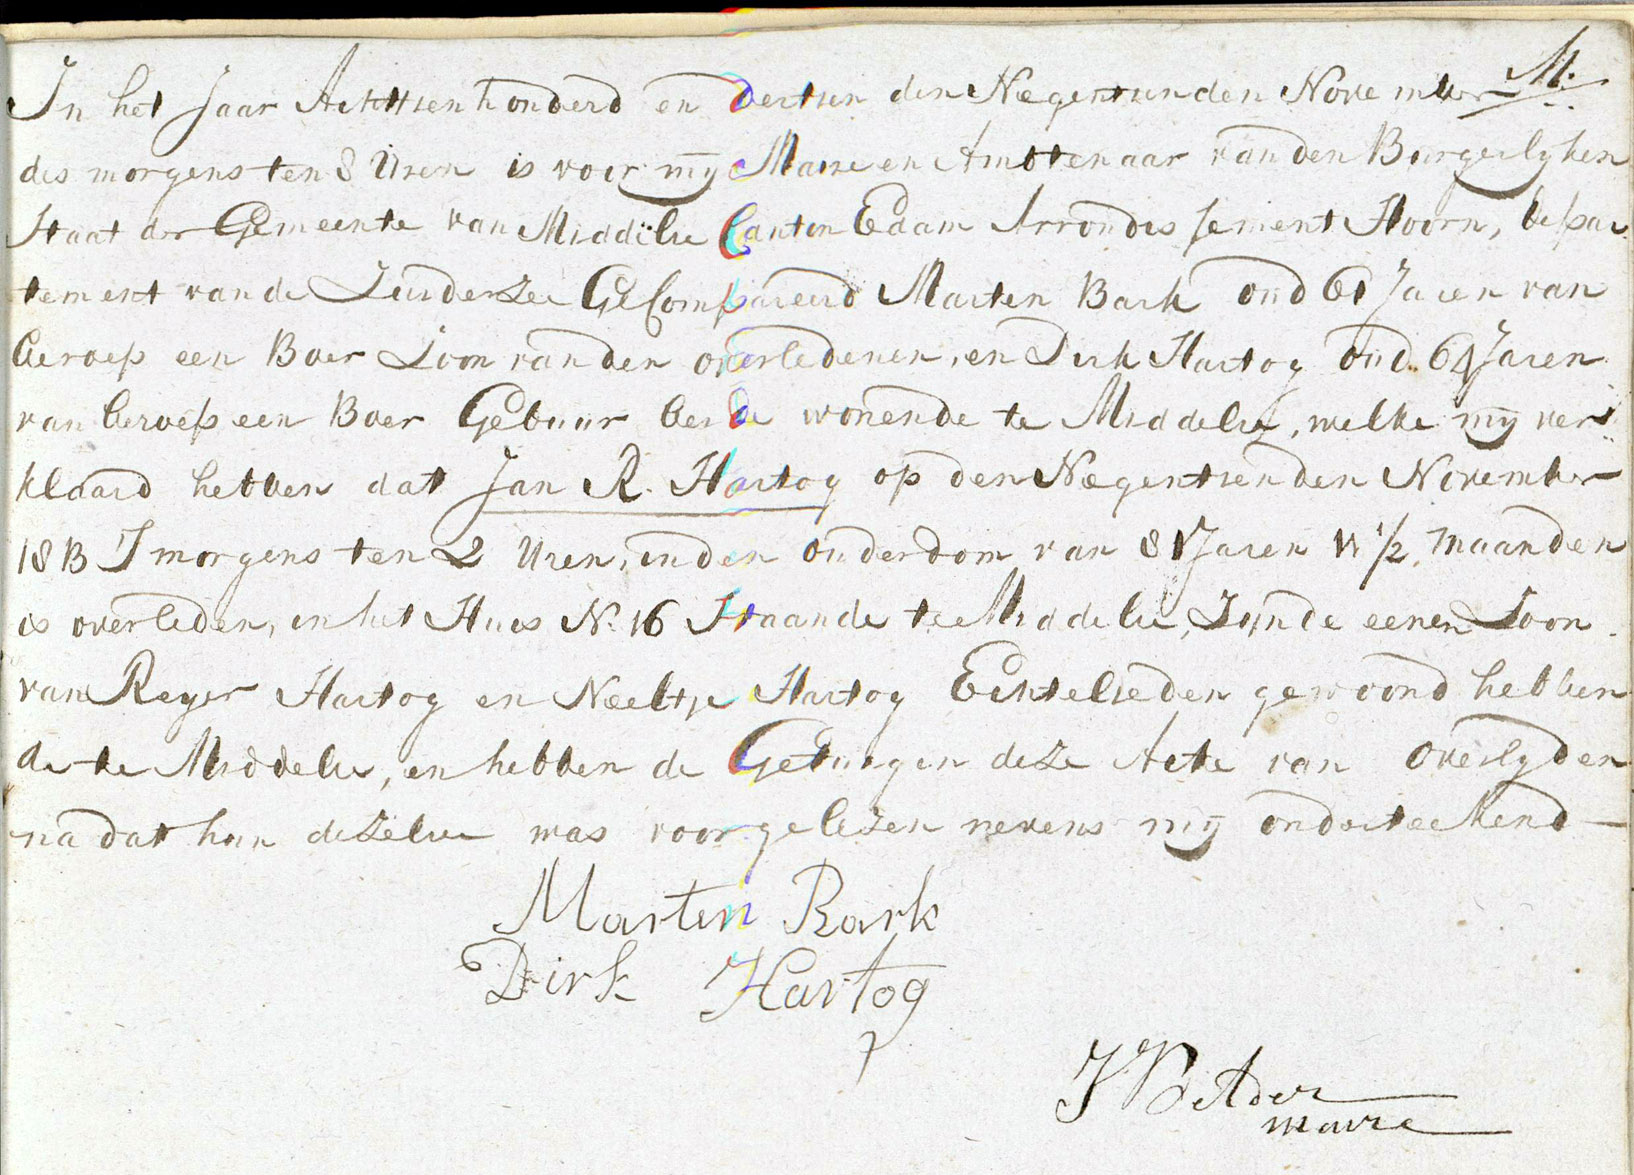 In het Jaar Achttien honderd en dertien den Negentienden November M.
des morgens ten 8 Uren is voor mÿ Maire en Ambtenaar van den Burgerlyken
Staat der Gemeente van Middelie Canton Edam Arrondissement Hoorn, depar
tement van de Zuiderzee GeCompareerd Marten Bark oud 61 Jaren van
beroep een Boer Zoon van den overledenen, en Dirk Hartog oud 64 Jaren
van beroep een Boer Gebuur beide wonende te Middelie, welke mÿ ver
klaard hebben dat Jan R. Hartog op den Negentienden November
1813 S morgens ten 2 Uren, in den ouderdom van 81 Jaren 11 1/2 maanden
is overleden, in het Huis N. 16 Staande te Middelie, Zÿnde eenen Zoon
van Reyer Hartog en Neeltje Hartog Echtelieden gewoond hebben
de te Middelie, en hebben de Getuigen deze Acte van Overlyden
na dat hun dezelve was voorgelezen nevens mÿ onderteekend
Marten Bark
Dirk Hartog
maire